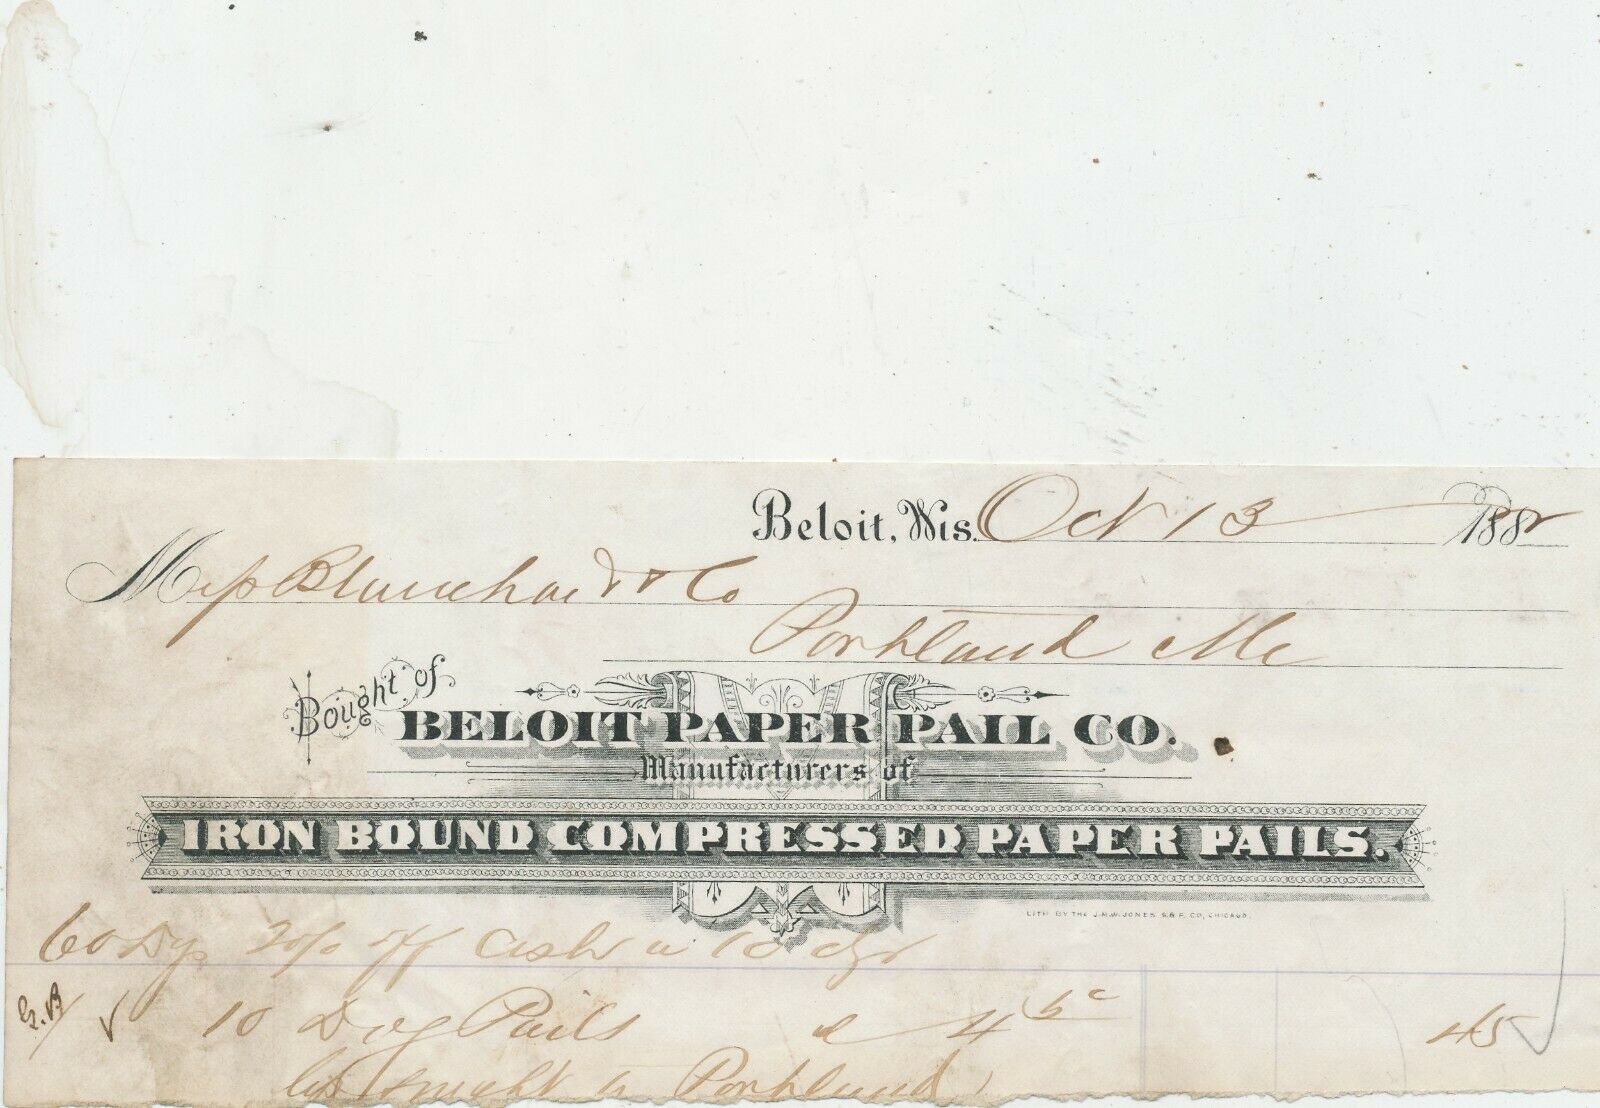 Beloit, Wis. Oct 13 1882
Mess Blanchard & Co
Portland Me
Bought of
BELOIT PAPER PAIL CO.
Manufacturers of
IRON BOUND COMPRESSED PAPER PAILS.
LITH BY THE J.M.W. JONES S. & P. CO, CHICAGO.
60 Dys 2 o/o off Cash in 10 dys
G.B/ √ 10 Doz Pails a 4 50 45
freight to Portland